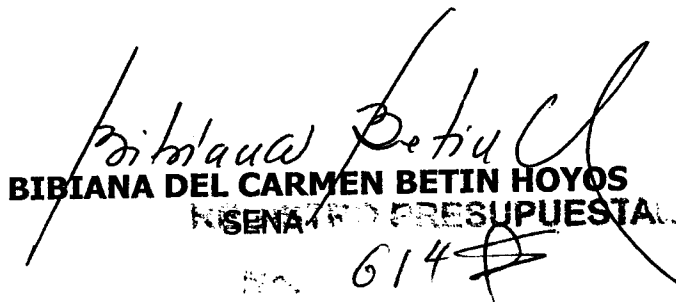 Bibiana Betin
BIBIANA DEL CARMEN BETIN HOYOS
SENA
REGISTRO PRESUPUESTAL
No. 614